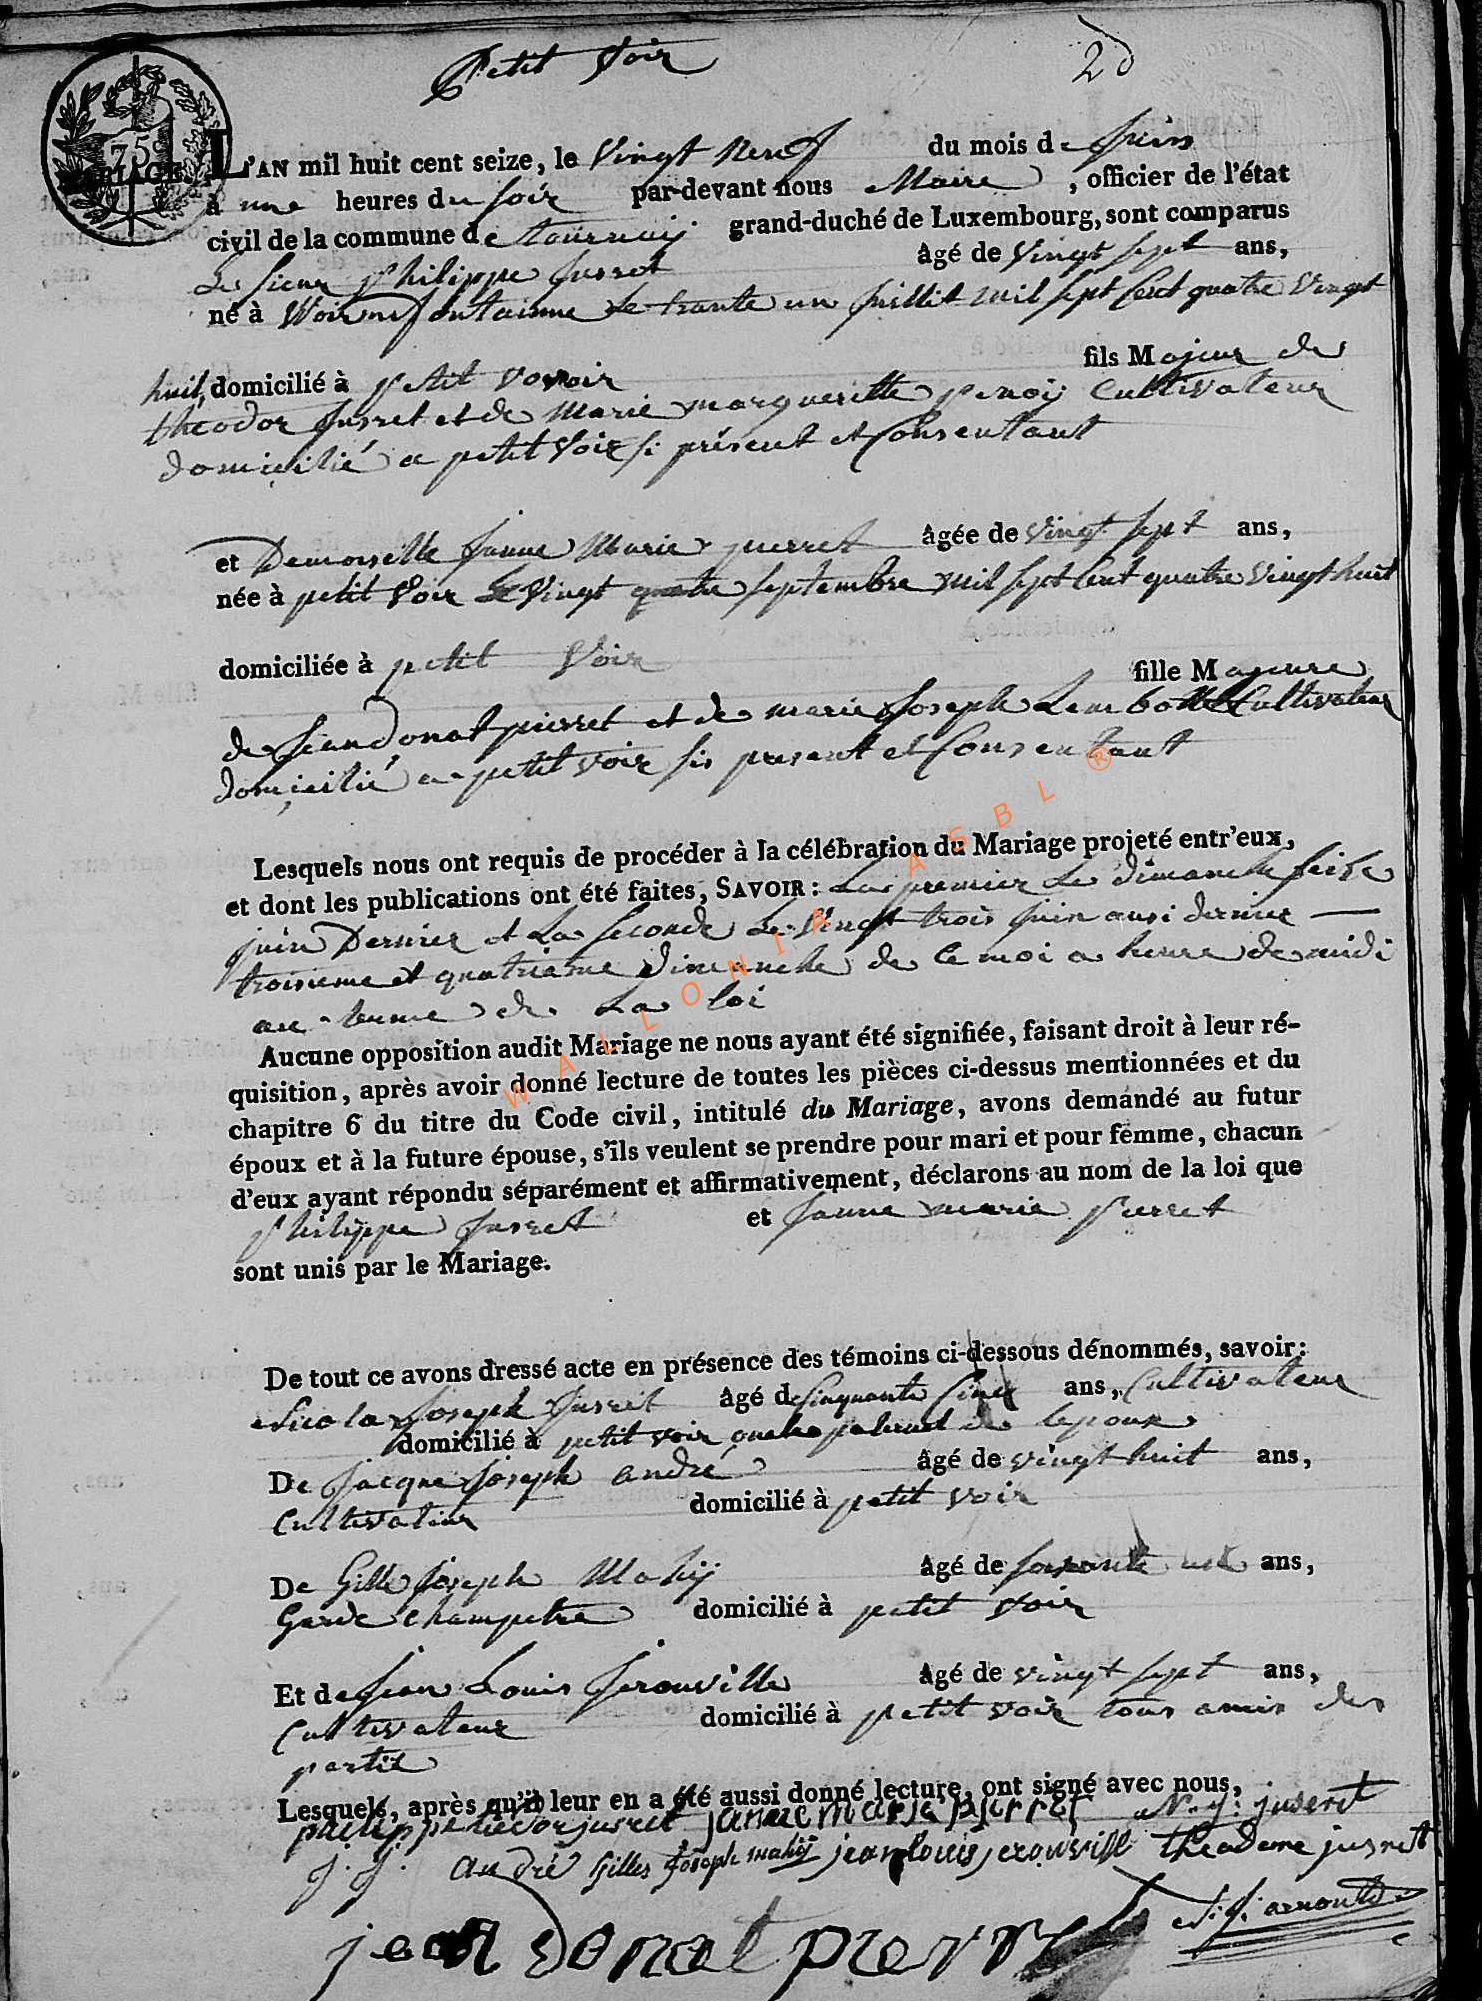 Petit Voir
20
75
MARIAGE
L'AN mil huit cent seize, le Vingt Neuf du mois de Juin
à une heures du soir par-devant nous Maire, officier de l'état
civil de la commune de tournaij grand-duché de Luxembourg, sont comparus
Le sieur Philippe Jusret âgé de vingt sept ans,
né à Le trante un Juillit mil sept Cent quatre Vingt
huit, domicilié à petit voir fils Majeur de
théodor Jusret et de Marie margueritte penoij Cultivateur
domicilié a petit Voir si présent et Consentant
et Demoiselle Janne Marie pierret âgée de vingt sept ans,
née à petit Voir Le Vingt quatre septembre mil sept Cent quatre Vingt huit
domiciliée à petit Voir fille Majeure
de Jean Donat pierret et de marie Joseph Lambotte Cultivateur
domicilié a petit voir sis present et Consentant
Lesquels nous ont requis de procéder à la célébration du Mariage projeté entr'eux,
et dont les publications ont été faites, SAVOIR : La premier Le dimanche seize
juin Dernier et La seconde Le Vingt trois juin ausi dernier
troisieme et quatrieme Dimanche de ce moi a heure de midi
au terme de La loi
Aucune opposition audit Mariage ne nous ayant été signifiée, faisant droit à leur ré-
quisition, après avoir donné lecture de toutes les pièces ci-dessus mentionnées et du
chapitre 6 du titre du Code civil, intitulé du Mariage, avons demandé au futur
époux et à la future épouse, s'ils veulent se prendre pour mari et pour femme, chacun
d'eux ayant répondu séparément et affirmativement, déclarons au nom de la loi que
Philippe Jusret et Janne marie Pierret
sont unis par le Mariage.
De tout ce avons dressé acte en présence des témoins ci-dessous dénommés, savoir :
Nicolas Joseph Jusret âgé de Cinquante Cinq ans, Cultivateur
domicilié à petit voir de lepoux
De Jacque Joseph andré âgé de vingt huit ans,
Cultivateur domicilié à petit voir
De Gille Joseph Mahij âgé de soixante ans,
Garde champetre domicilié à petit voir
Et de Jean Louis Jerouville âgé de vingt sept ans,
Cultivateur domicilié à petit voir tous amis des
partie
Lesquels, après qu'il leur en a été aussi donné lecture, ont signé avec nous,
philippe jusret janne marie pierret N. j. jusret
j. j. andré Gilles Joseph mahij jean louis jerouville theodore jusret
jean donat pierret N. J. arnould
WALLONIA ASBL ®